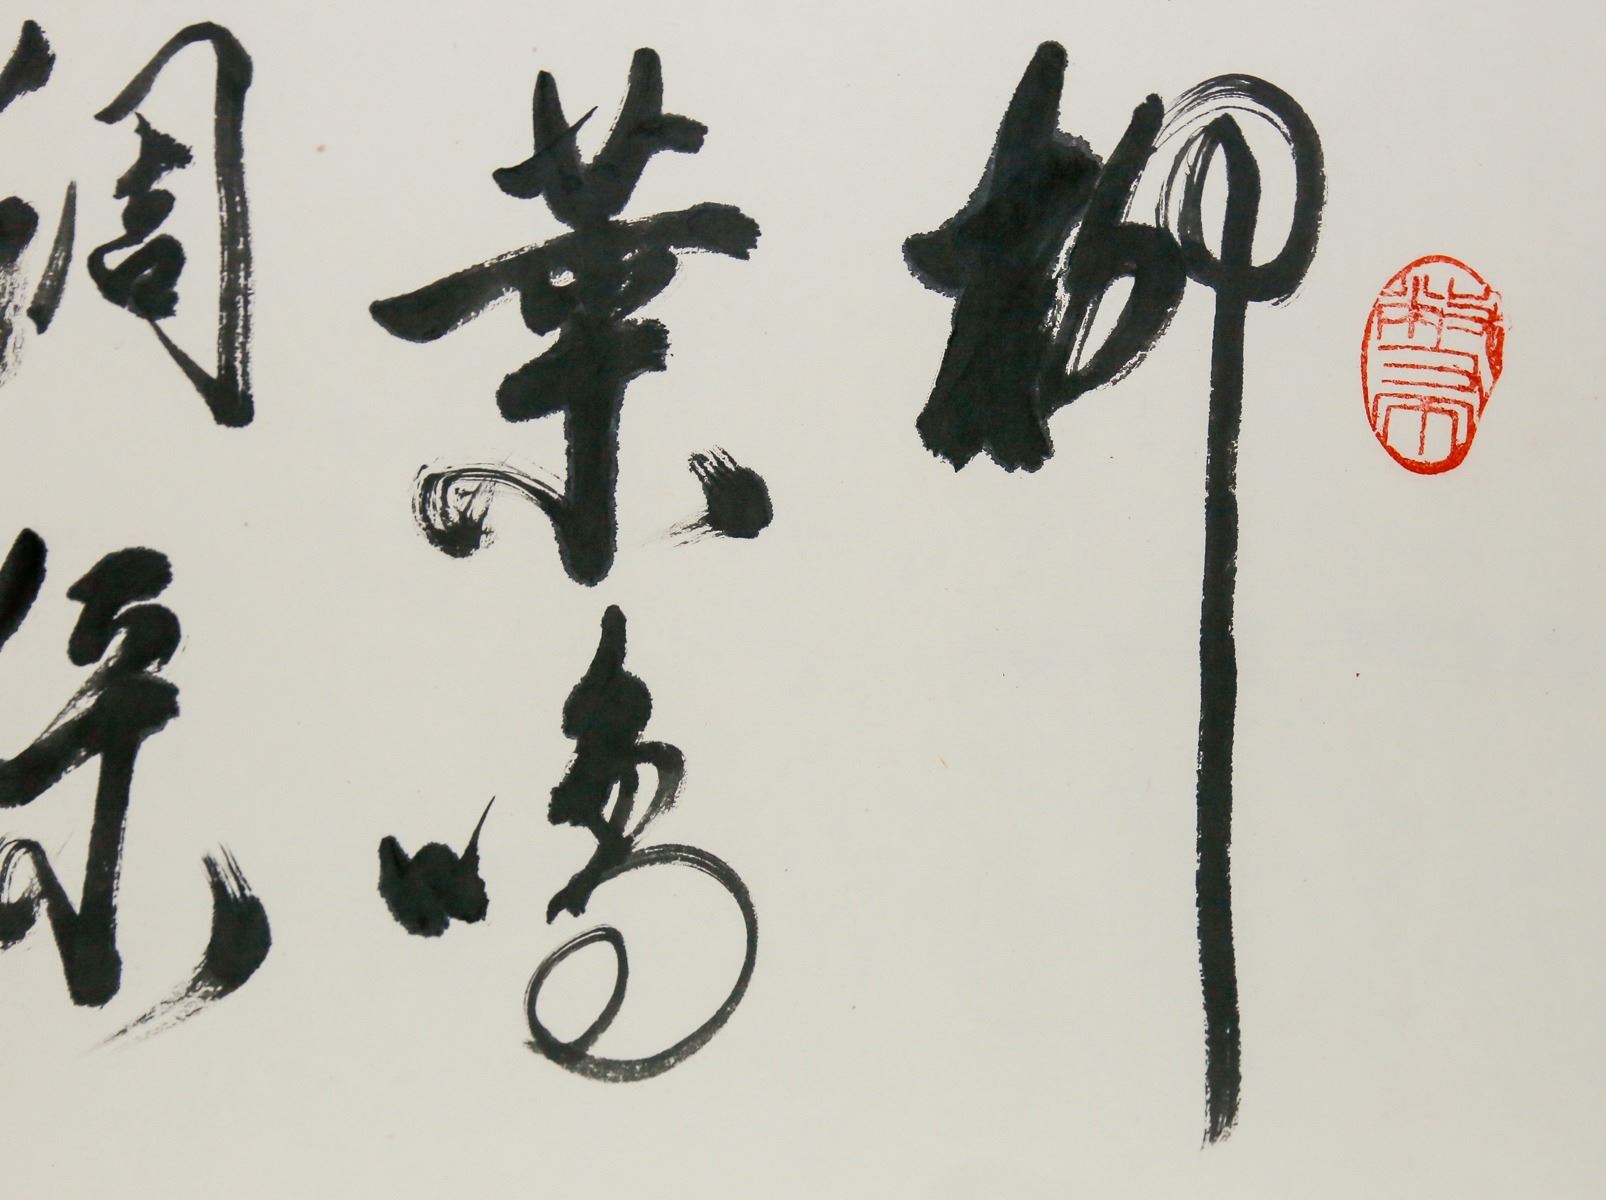 柳
葉鳴
蜩綠